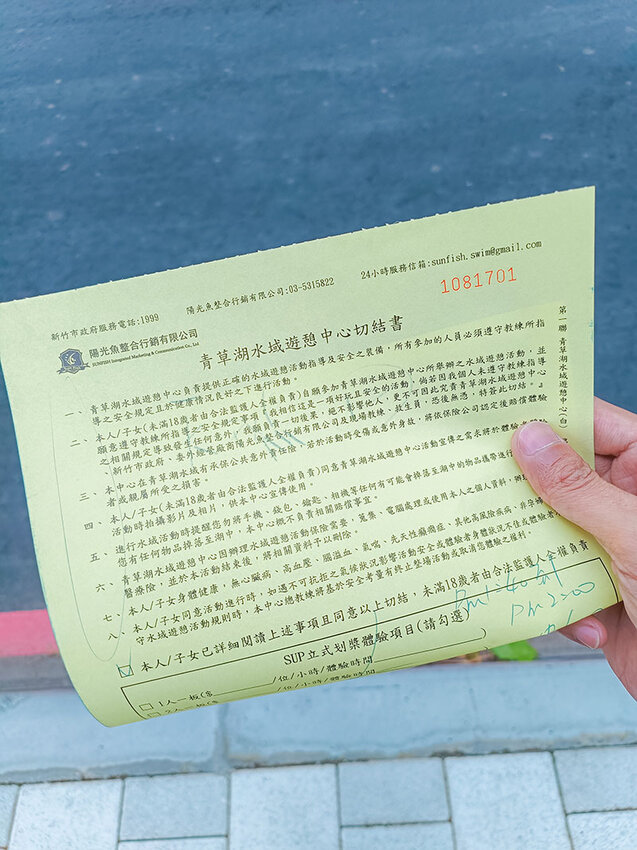 新竹市政府服務電話:1999 陽光魚整合行銷有限公司:03-5315822 24小時服務信箱:sunfish.swim@gmail.com
1081701
陽光魚整合行銷有限公司
SUNFISH Integrated Marketing & Communication Co., Ltd
青草湖水域遊憩中心切結書
一、青草湖水域遊憩中心負責提供正確的水域遊憩活動指導及安全之裝備,所有參加的人員必須遵守教練所指
導之安全規定且於健康情況良好之下進行活動。
二、本人/子女(未滿18歲者由合法監護人全權負責)自願參加青草湖水域遊憩中心所舉辦之水域遊憩活動,並
願意遵守教練所指導之安全規定事項『我相信這是一項好玩且安全的活動,倘若因我個人未遵守教練指導
之相關規定導致發生任何意外,我願負責一切後果,絕不影響他人,更不可因此究責青草湖水域遊憩中心
、新竹市政府、委外經營廠商陽光魚整合行銷有限公司及現場教練、救生員,恐後無憑,特簽此切結。』
三、本中心在青草湖水域有承保公共意外責任險,若於活動時受傷或意外身故,將依保險公司認之後賠償體驗
者或親屬所受之損害。
四、本人/子女(未滿18歲者由合法監護人全權負責)同意青草湖水域遊憩中心活動宣傳之需求將於體驗
活動時拍攝影片及相片,供本中心宣傳使用。
五、進行水域活動時提醒您勿將手機、錢包、鑰匙、相機等任何有可能會掉落至湖中的物品攜帶進行
您有任何物品掉落至湖中,本中心概不負責相關賠償事宜。
六、青草湖水域遊憩中心因辦理水域遊憩活動保險需要,蒐集、電腦處理或使用本人之個人資料,辦理
醫療險,並於本活動結束後,將相關資料予以刪除。
七、本人/子女身體健康,無心臟病、高血壓、腦溫血、氣喘、先天性癲癇症、其他高風險疾病、非孕婦
八、本人/子女同意活動進行時,如遇不可抗拒之氣候狀況影響活動安全或體驗者身體狀況不佳或體驗者
守水域遊憩活動規則時,本中心總教練將基於安全考量有終止整場活動或取消您體驗之權利。
☑ 本人/子女已詳細閱讀上述事項且同意以上切結,未滿18歲者由合法監護人全權負責
SUP立式划槳體驗項目(請勾選)
□ 1人一板($ /位/小時/體驗時間
□ 2人一板($ /位/小時/體驗時間
Pm1:40
Pm2:00
第一聯 青草湖水域遊憩活動中心(白